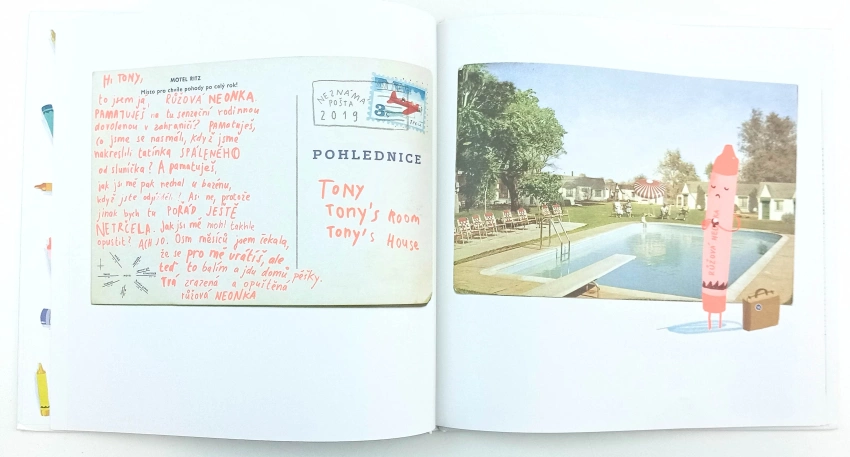 Hi TONY,
MOTEL RITZ
Místo pro chvíle pohody po celý rok!
to jsem já, RŮŽOVÁ NEONKA.
PAMATUJEŠ na tu senzační rodinnou
dovolenou v zahraničí? Pamatuješ,
co jsme se nasmáli, když jsme
nakreslili tatínka SPÁLENÉHO
od sluníčka? A pamatuješ,
jak jsi mě pak nechal u bazénu,
když jste odjížděli? Asi ne, protože
jinak bych tu POŘÁD JEŠTĚ
NETRČELA. Jak jsi mě mohl takhle
opustit? ACH JO. Osm měsíců jsem čekala,
že se pro mě vrátíš, ale
teď to balím a jdu domů pěšky.
Tvá zrazená a opuštěná
růžová NEONKA
NEZNÁMÁ
POŠTA
2019
8
POHLEDNICE
TONY
Tony's Room
Tony's House